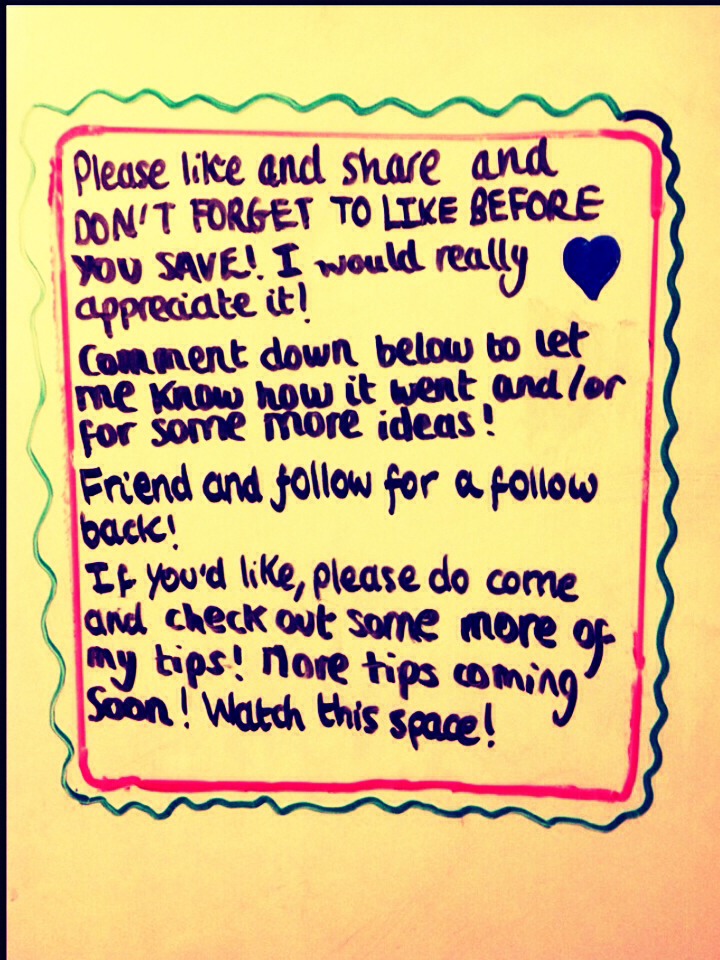 Please like and share and
DON'T FORGET TO LIKE BEFORE
YOU SAVE! I would really
appreciate it!
Comment down below to let
me know how it went and/or
for some more ideas!
Friend and follow for a follow
back!
If you'd like, please do come
and check out some more of
my tips! More tips coming
soon! Watch this space!